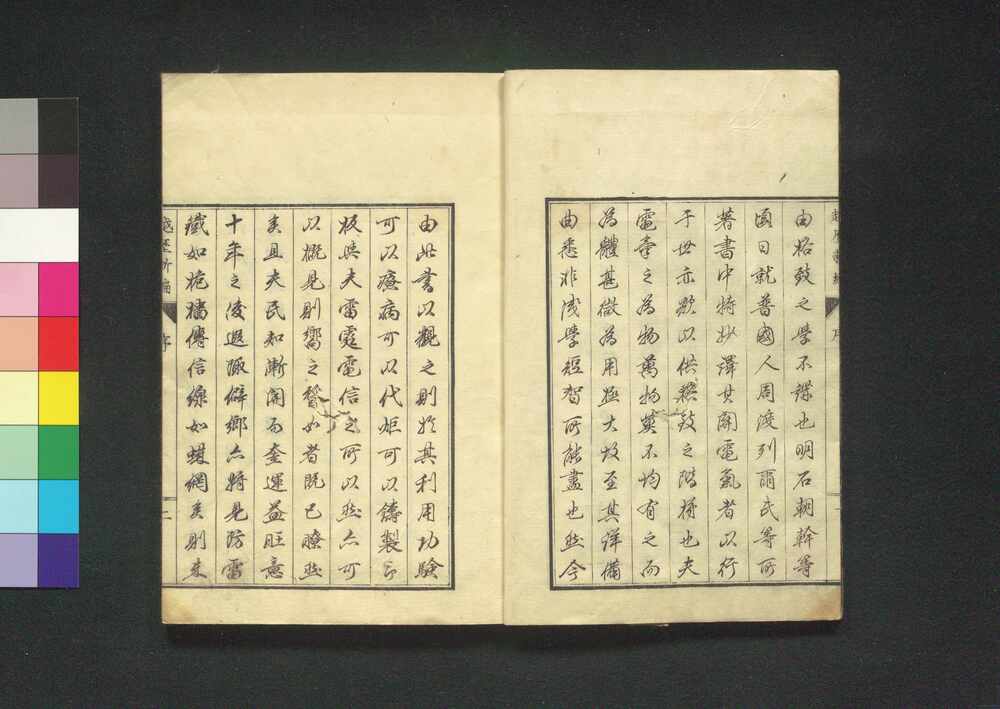 越歷新編 序 一
由格致之學不講也明石朝幹等
因日就普國人周列爾氏等所
著書中特抄譯其關電氣者以行
于世亦欲以供格致之階梯也夫
電氣之為物萬物莫不均有之而
為體甚微為用極大故至其詳備
曲悉非淺學短智所能盡也然今
由此書以觀之則於其利用功驗
可以療病可以代炬可以鑄製印
板與夫雷霆電信之所以然亦可
以概見則嚮之瞀如者既已瞭然
矣且夫民知漸開而奎運益旺意
十年之後遐陬僻鄉亦將見防雷
鐵如桅檣傳信線如蛛網矣則來
越歷新編 序 二